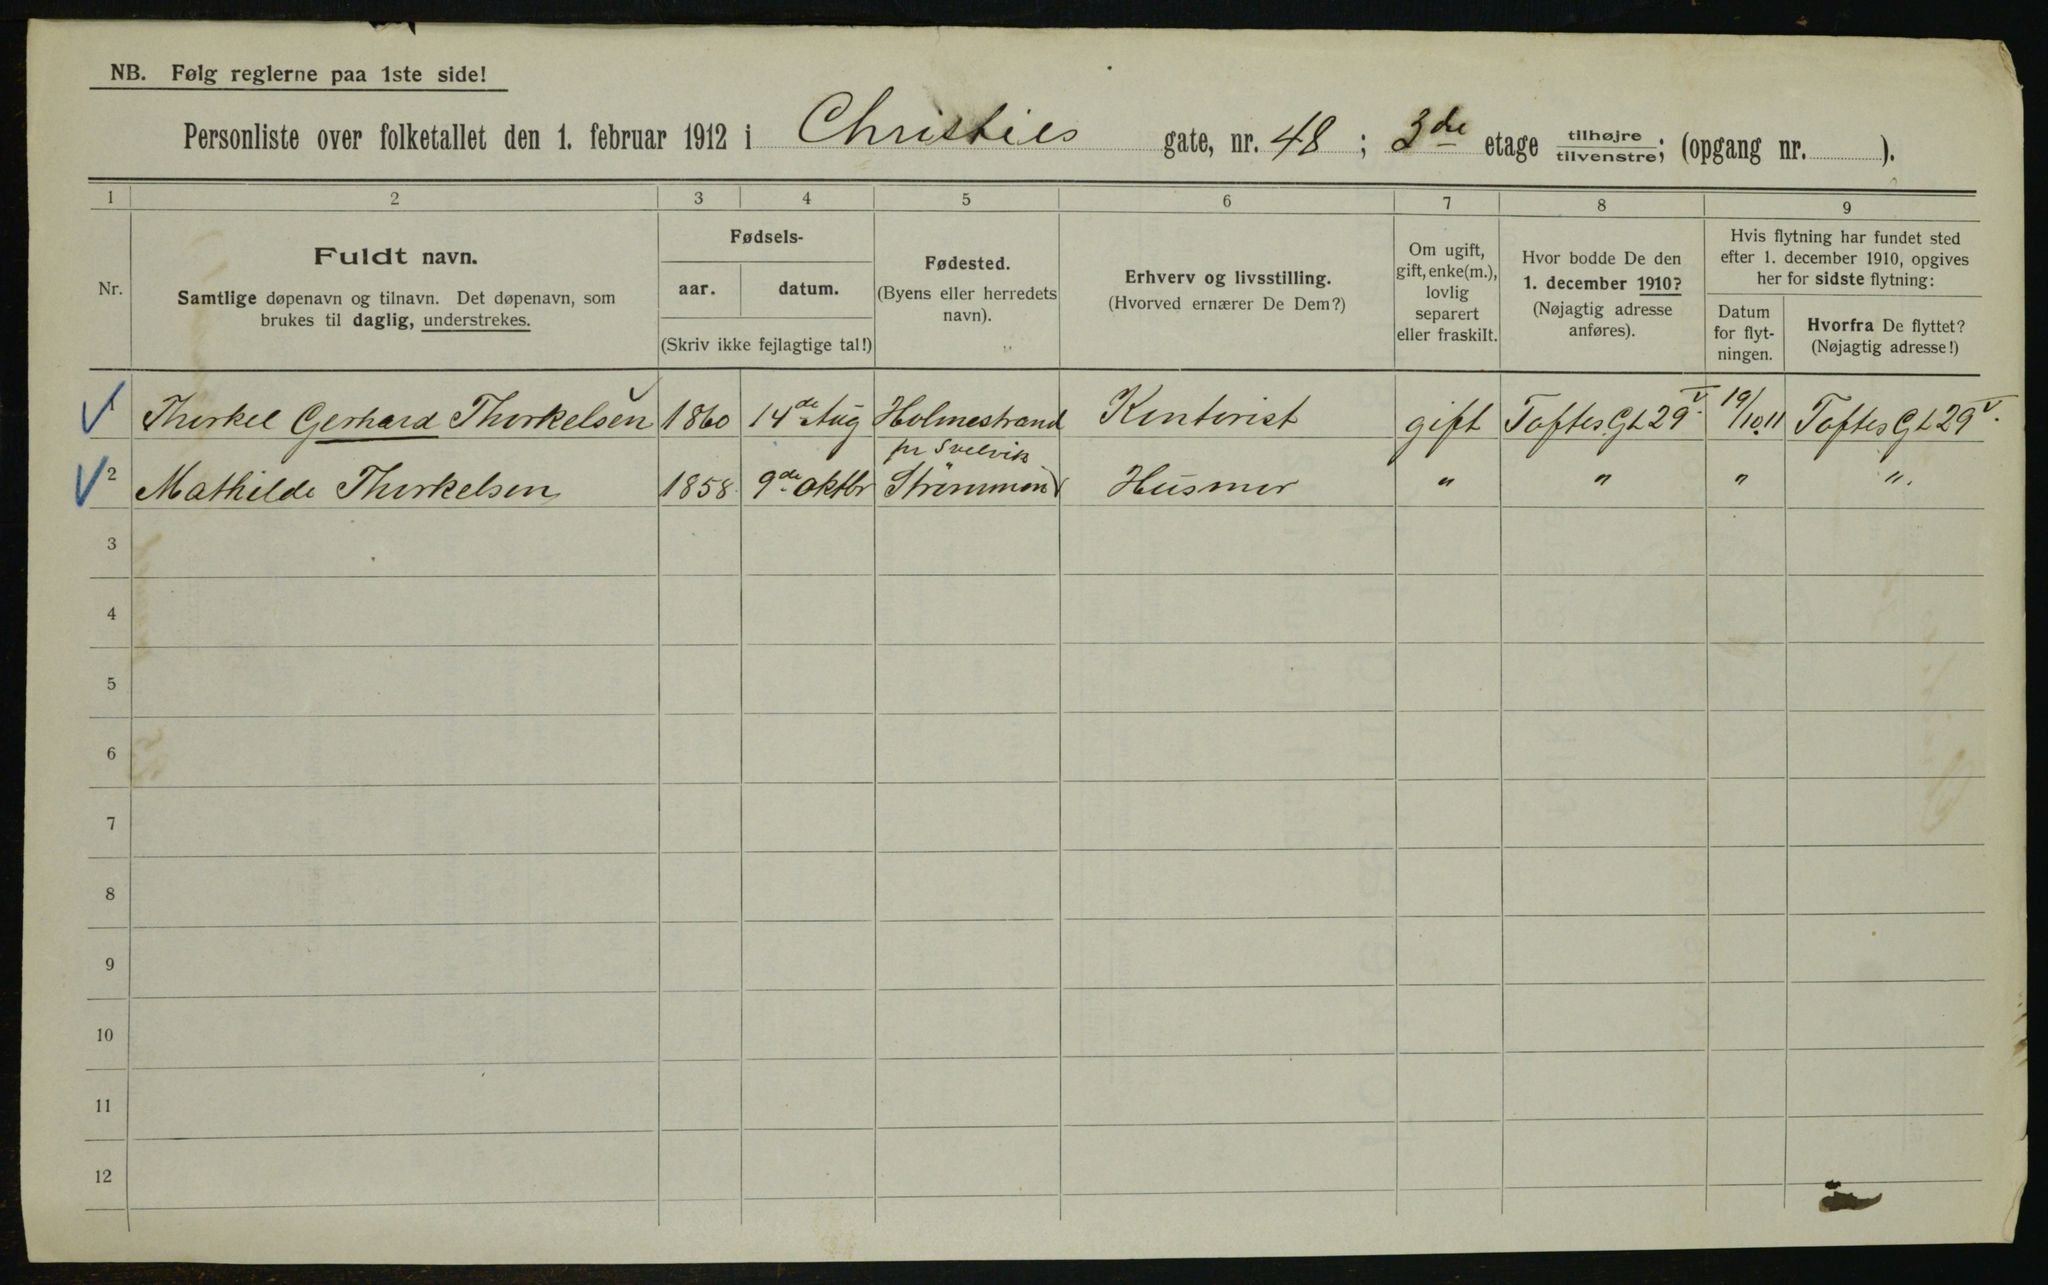 NB. Følg reglerne paa 1ste side!
Personliste over folketallet den 1. februar 1912 i Christies gate, nr. 48 ; 3de etage tilhøjre tilvenstre; (opgang nr. ).
1 2 3 4 5 6 7 8 9
Nr.
Fuldt navn.
Samtlige døpenavn og tilnavn. Det døpenavn, som
brukes til daglig, understrekes.
Fødsels-
aar. datum.
(Skriv ikke fejlagtige tal!)
Fødested.
(Byens eller herredets
navn).
Erhverv og livsstilling.
(Hvorved ernærer De Dem?)
Om ugift,
gift, enke(m.),
lovlig
separert
eller fraskilt.
Hvor bodde De den
1. december 1910?
(Nøjagtig adresse
anføres).
Hvis flytning har fundet sted
efter 1. december 1910, opgives
her for sidste flytning:
Datum
for flyt-
ningen.
Hvorfra De flyttet?
(Nøjagtig adresse!)
1 Thorkel Gerhard Thorkelsen 1860 14de Aug Holmestrand Kontorist gift Toftes Gt 29 V. 19/10 11 Toftes Gt 29 V.
pr Svelvik
2 Mathilde Thorkelsen 1858 9de oktbr Strömmen Husmor " " " ".
3
4
5
6
7
8
9
10
11
12